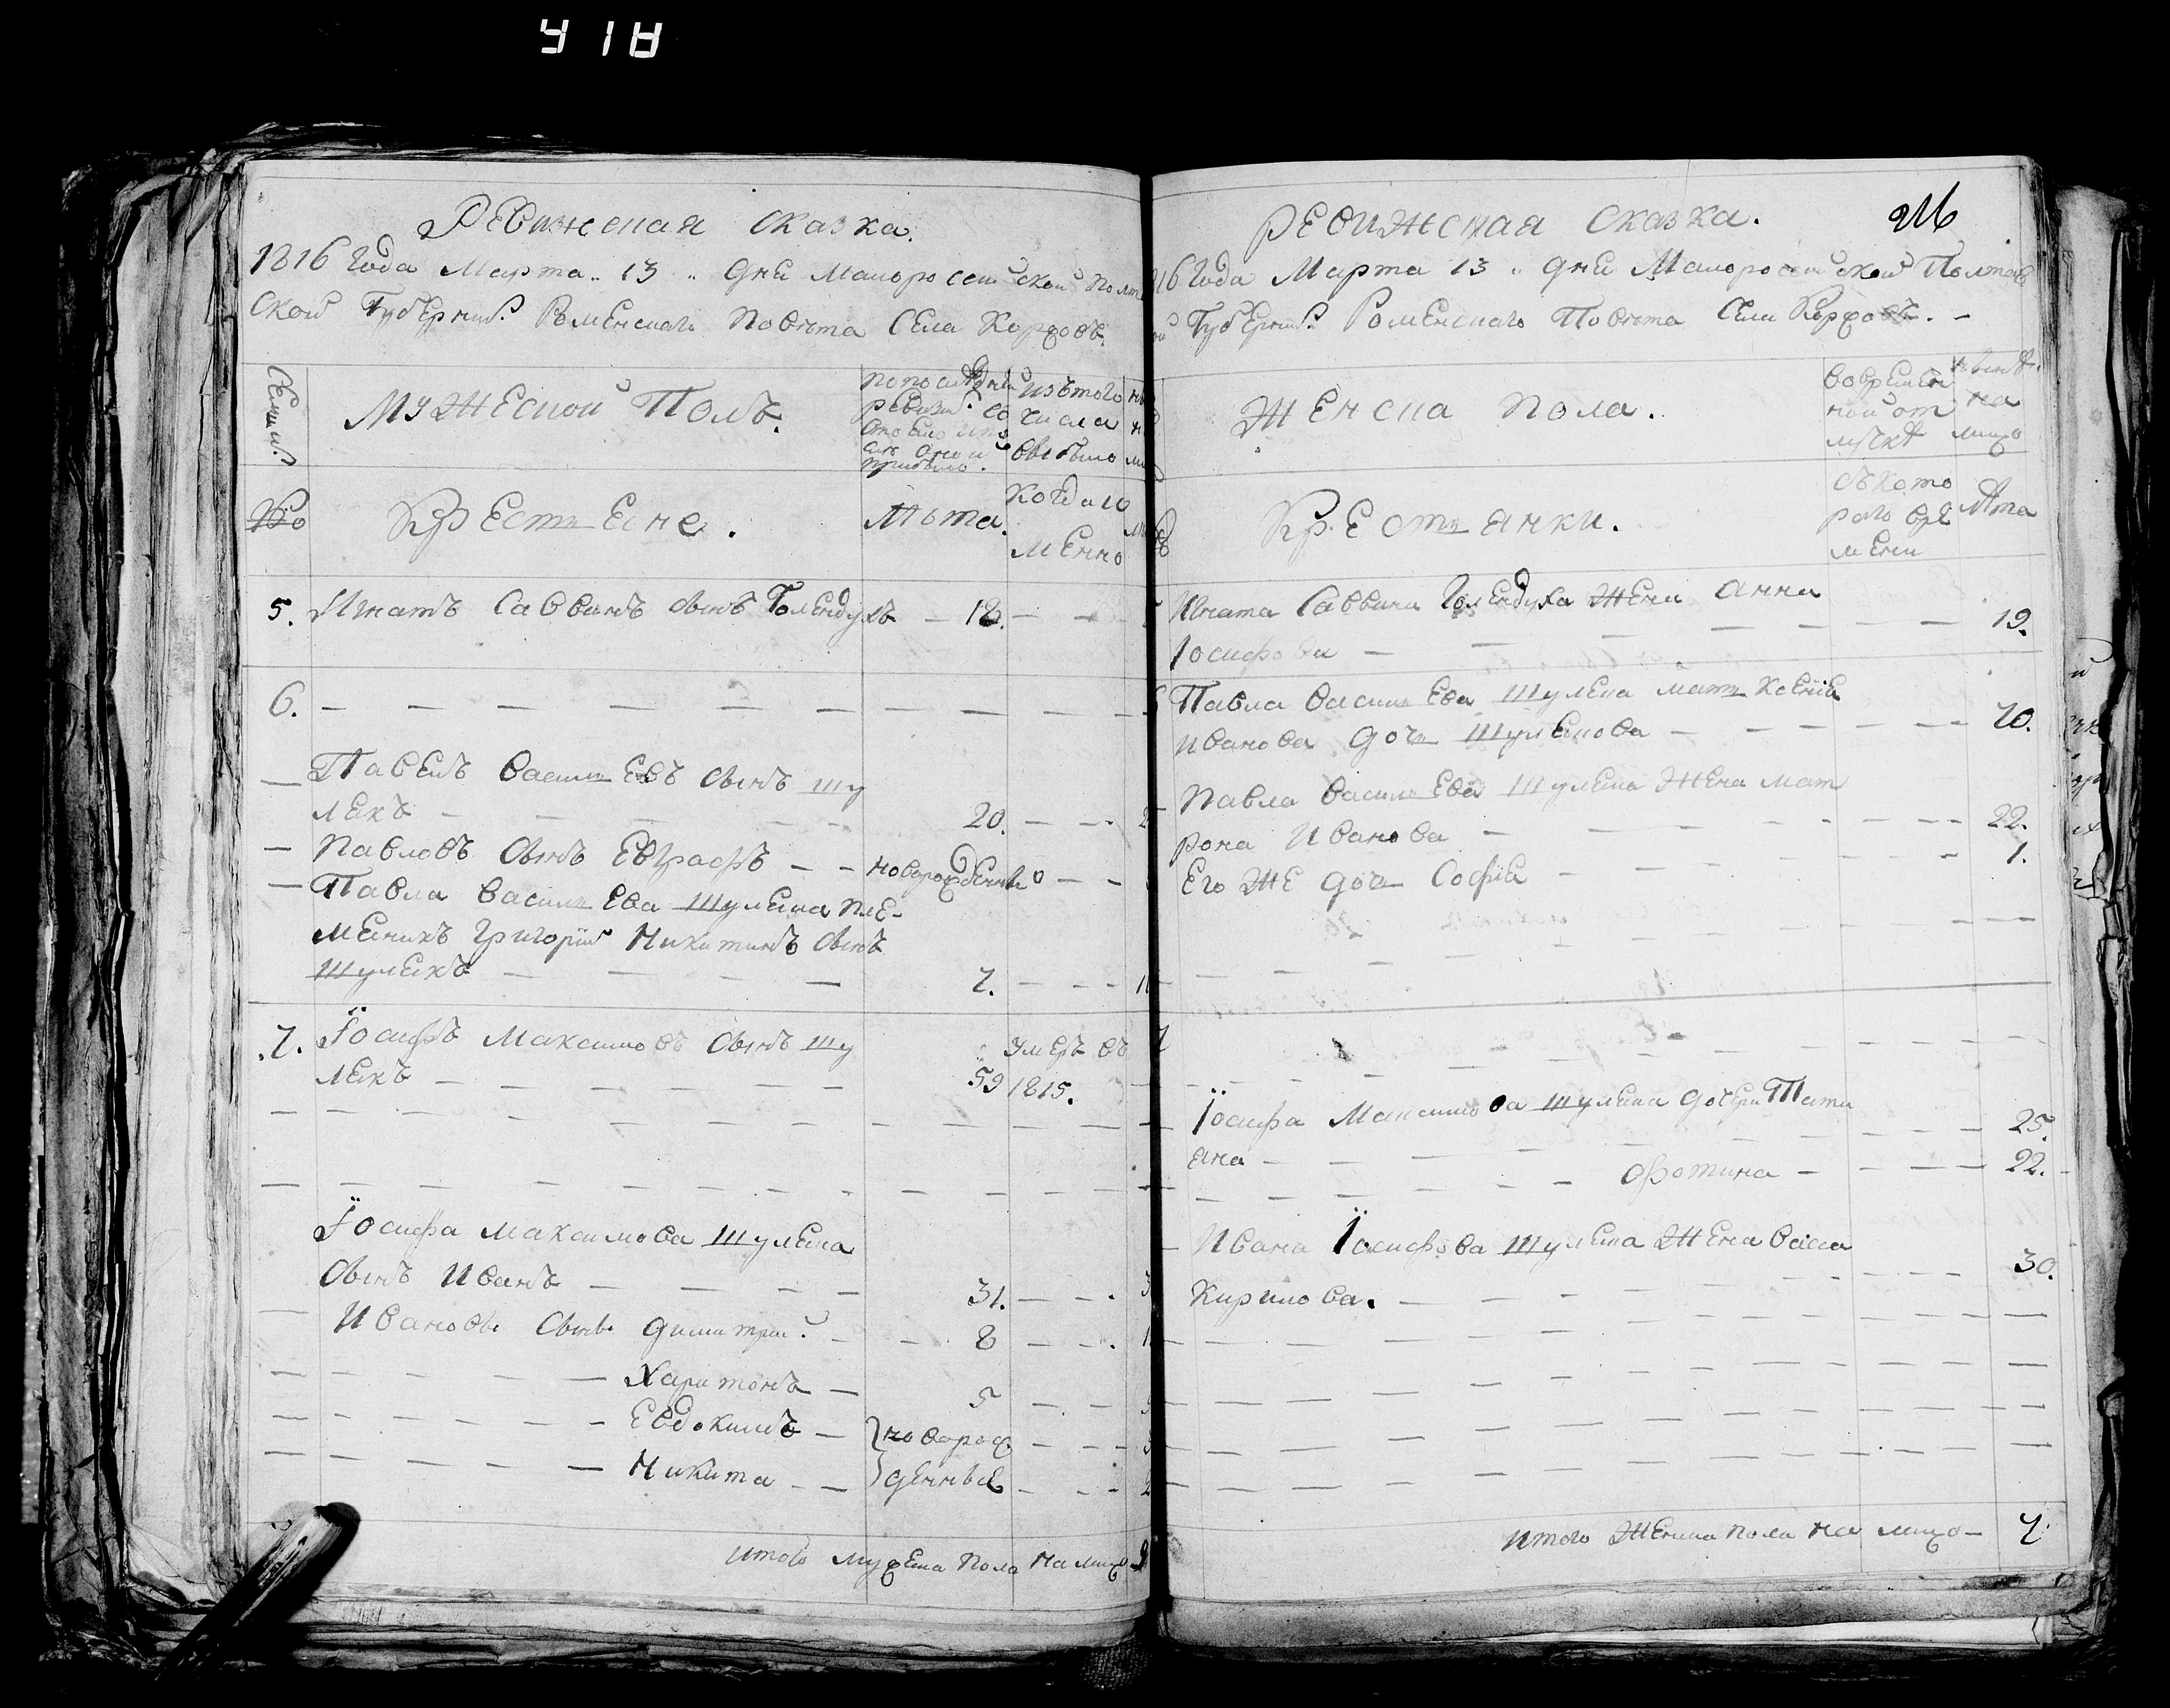 Ревижская Сказка.
1816 Года Марта 13 дня Малороссийской Полта
ской Губернии Роменского Повета Села Коржовъ.
Семьи
Мужеской Полъ.
По последней
ревизии со
стояло и по
сле оной
прибыло.
изъ того
числа
выбыло
№о
Крестьяне.
Лета.
Когда и
менно
5. Игнатъ Саввинъ сынъ Голендухъ — 18. — —
6. — — — — — — — — — —
— Павелъ Васильевъ сынъ Шу
лекъ — — — — — 20. — —
— Павловъ сынъ Евграфъ — — новорожденный — —
— Павла Васильева Шулека пле-
меникъ Григорий Никитинъ сынъ
Шулекъ — — — — 7. — — —
7. Іосифъ Максимовъ сынъ Шу
лекъ — — — — — 59
умеръ въ
1815.
Іосифа Максимова Шулека
сынъ Иванъ — — — — 31. — —
— Ивановы сыны Димитрий — — 8 — —
— — — — — Харитонъ — 5 — —
— — — — — Евдокимъ — новорож — —
— — — — — Никита — — денные — —
Итого мужеска пола на лицо
Ревижская Сказка. 216
16 Года Марта 13 дня Малороссийской Полтав
ой Губернии Роменского Повета Села Коржовъ. —
Женска пола.
Во времен
ной от
лучке
ныне
на
лицо
Крестьянки.
Съ кото
раго вре
мени
Лета
Игната Саввина Голендуха жена Анна
Іосифова — — — — — — 19.
Павла Васильева Шулека мать Ксения
Иванова дочь Шулекова — — — — 70.
Павла Васильева Шулека жена Мат
рона Иванова — — — — — 22.
Его же дочь София — — — — 1.
Іосифа Максимова Шулека дочери Тати
яна — — — — — — 25.
— — — — — — Фотина — — — 22.
— Ивана Іосифова Шулека жена Васса
Кирилова. — — — — — 30.
Итого женска пола на лицо — 7